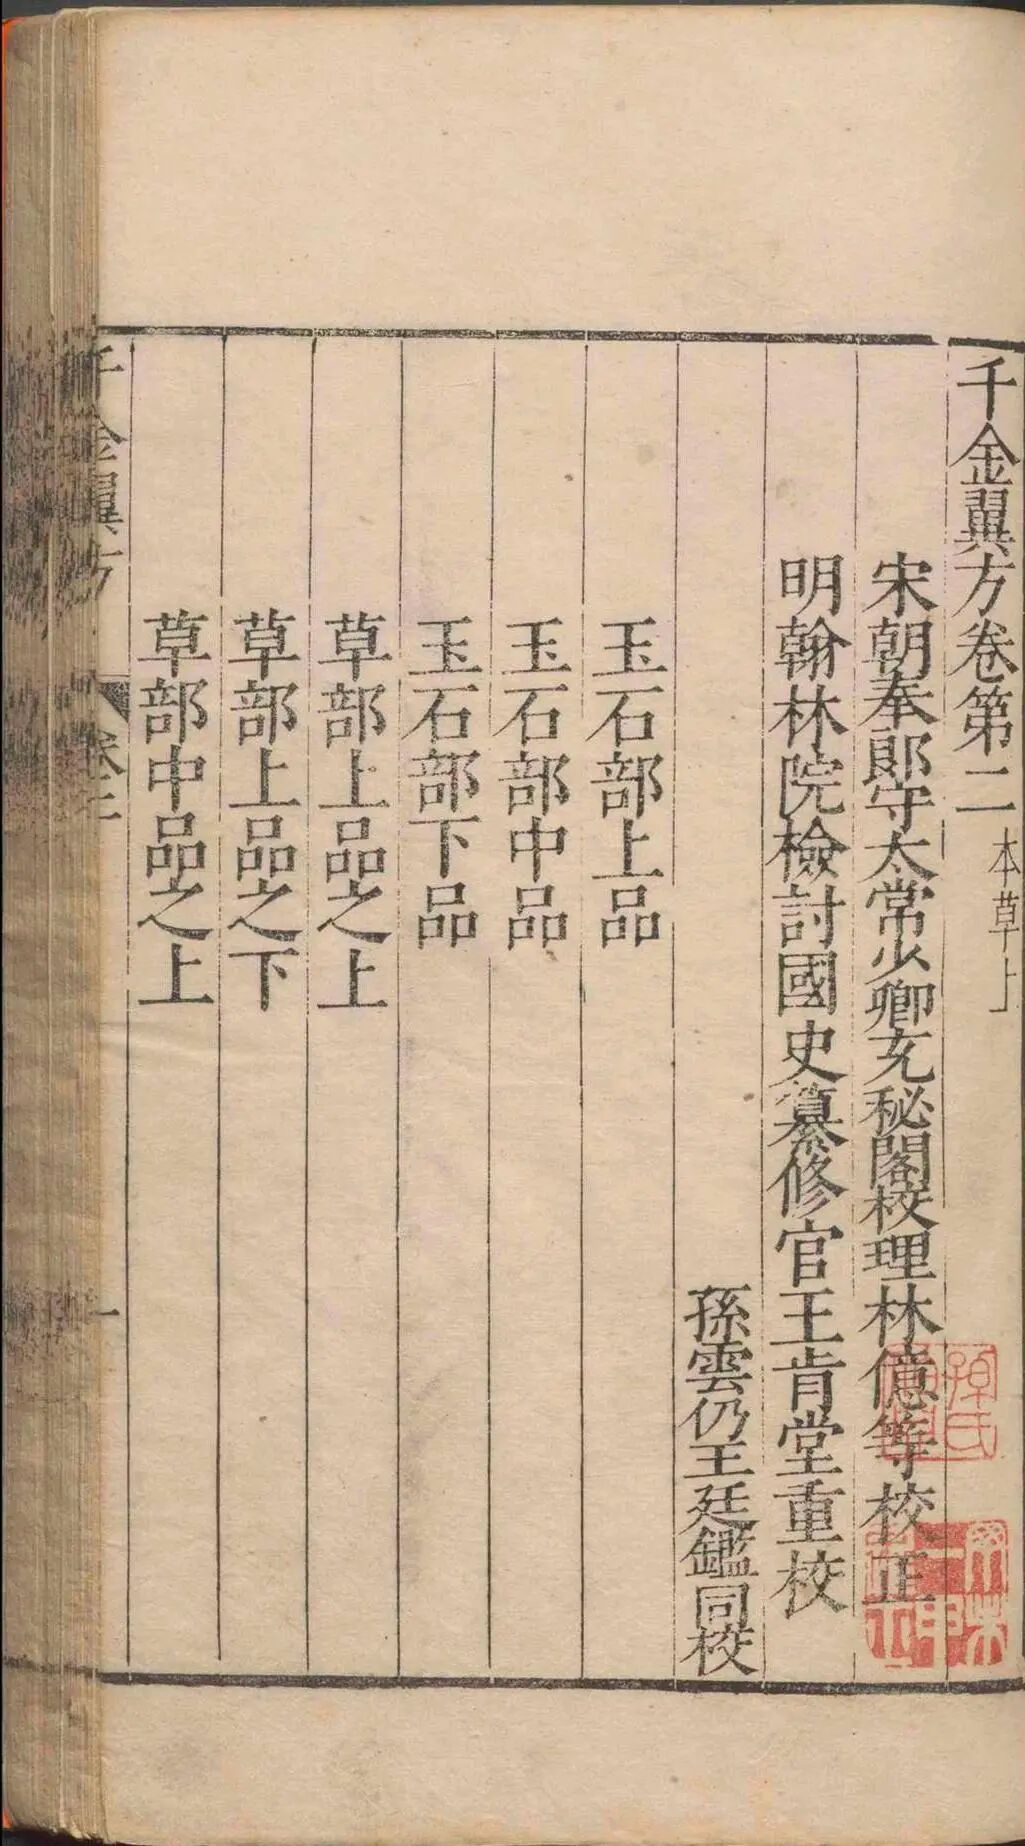 千金翼方卷第二 本草上
宋朝奉郎守太常少卿充秘閣校理林億等校正
明翰林院檢討國史纂修官王肯堂重校
孫雲仍王廷鑑同校
玉石部上品
玉石部中品
玉石部下品
草部上品之上
草部上品之下
草部中品之上
千金翼方 卷二 一